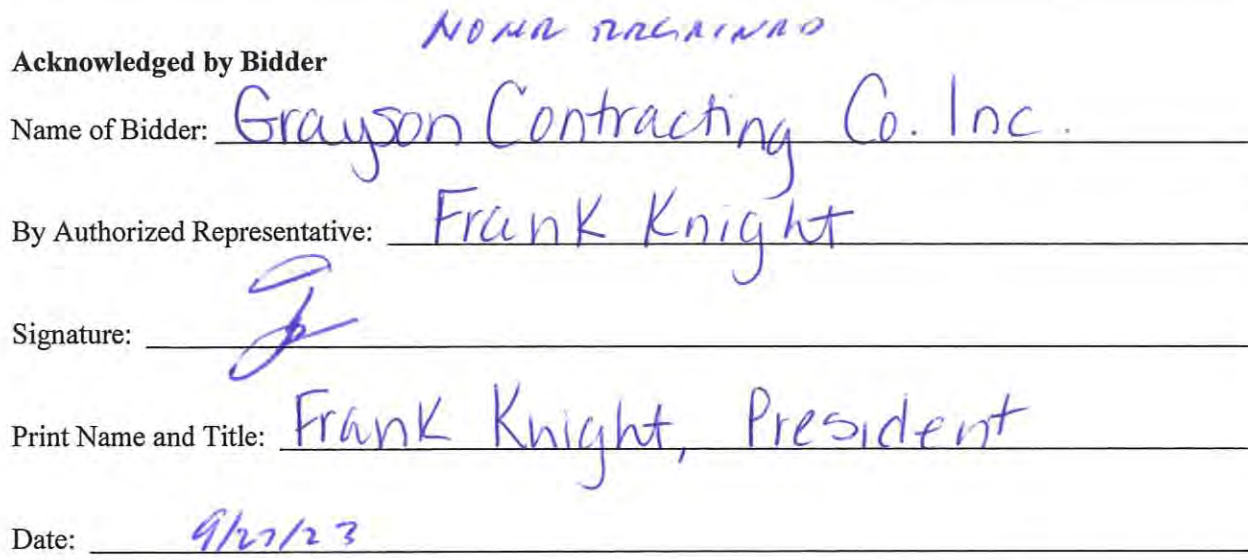 NONE RECEIVED
Acknowledged by Bidder
Name of Bidder: Grayson Contracting Co. Inc.
By Authorized Representative: Frank Knight
Signature:
Print Name and Title: Frank Knight, President
Date: 9/27/23